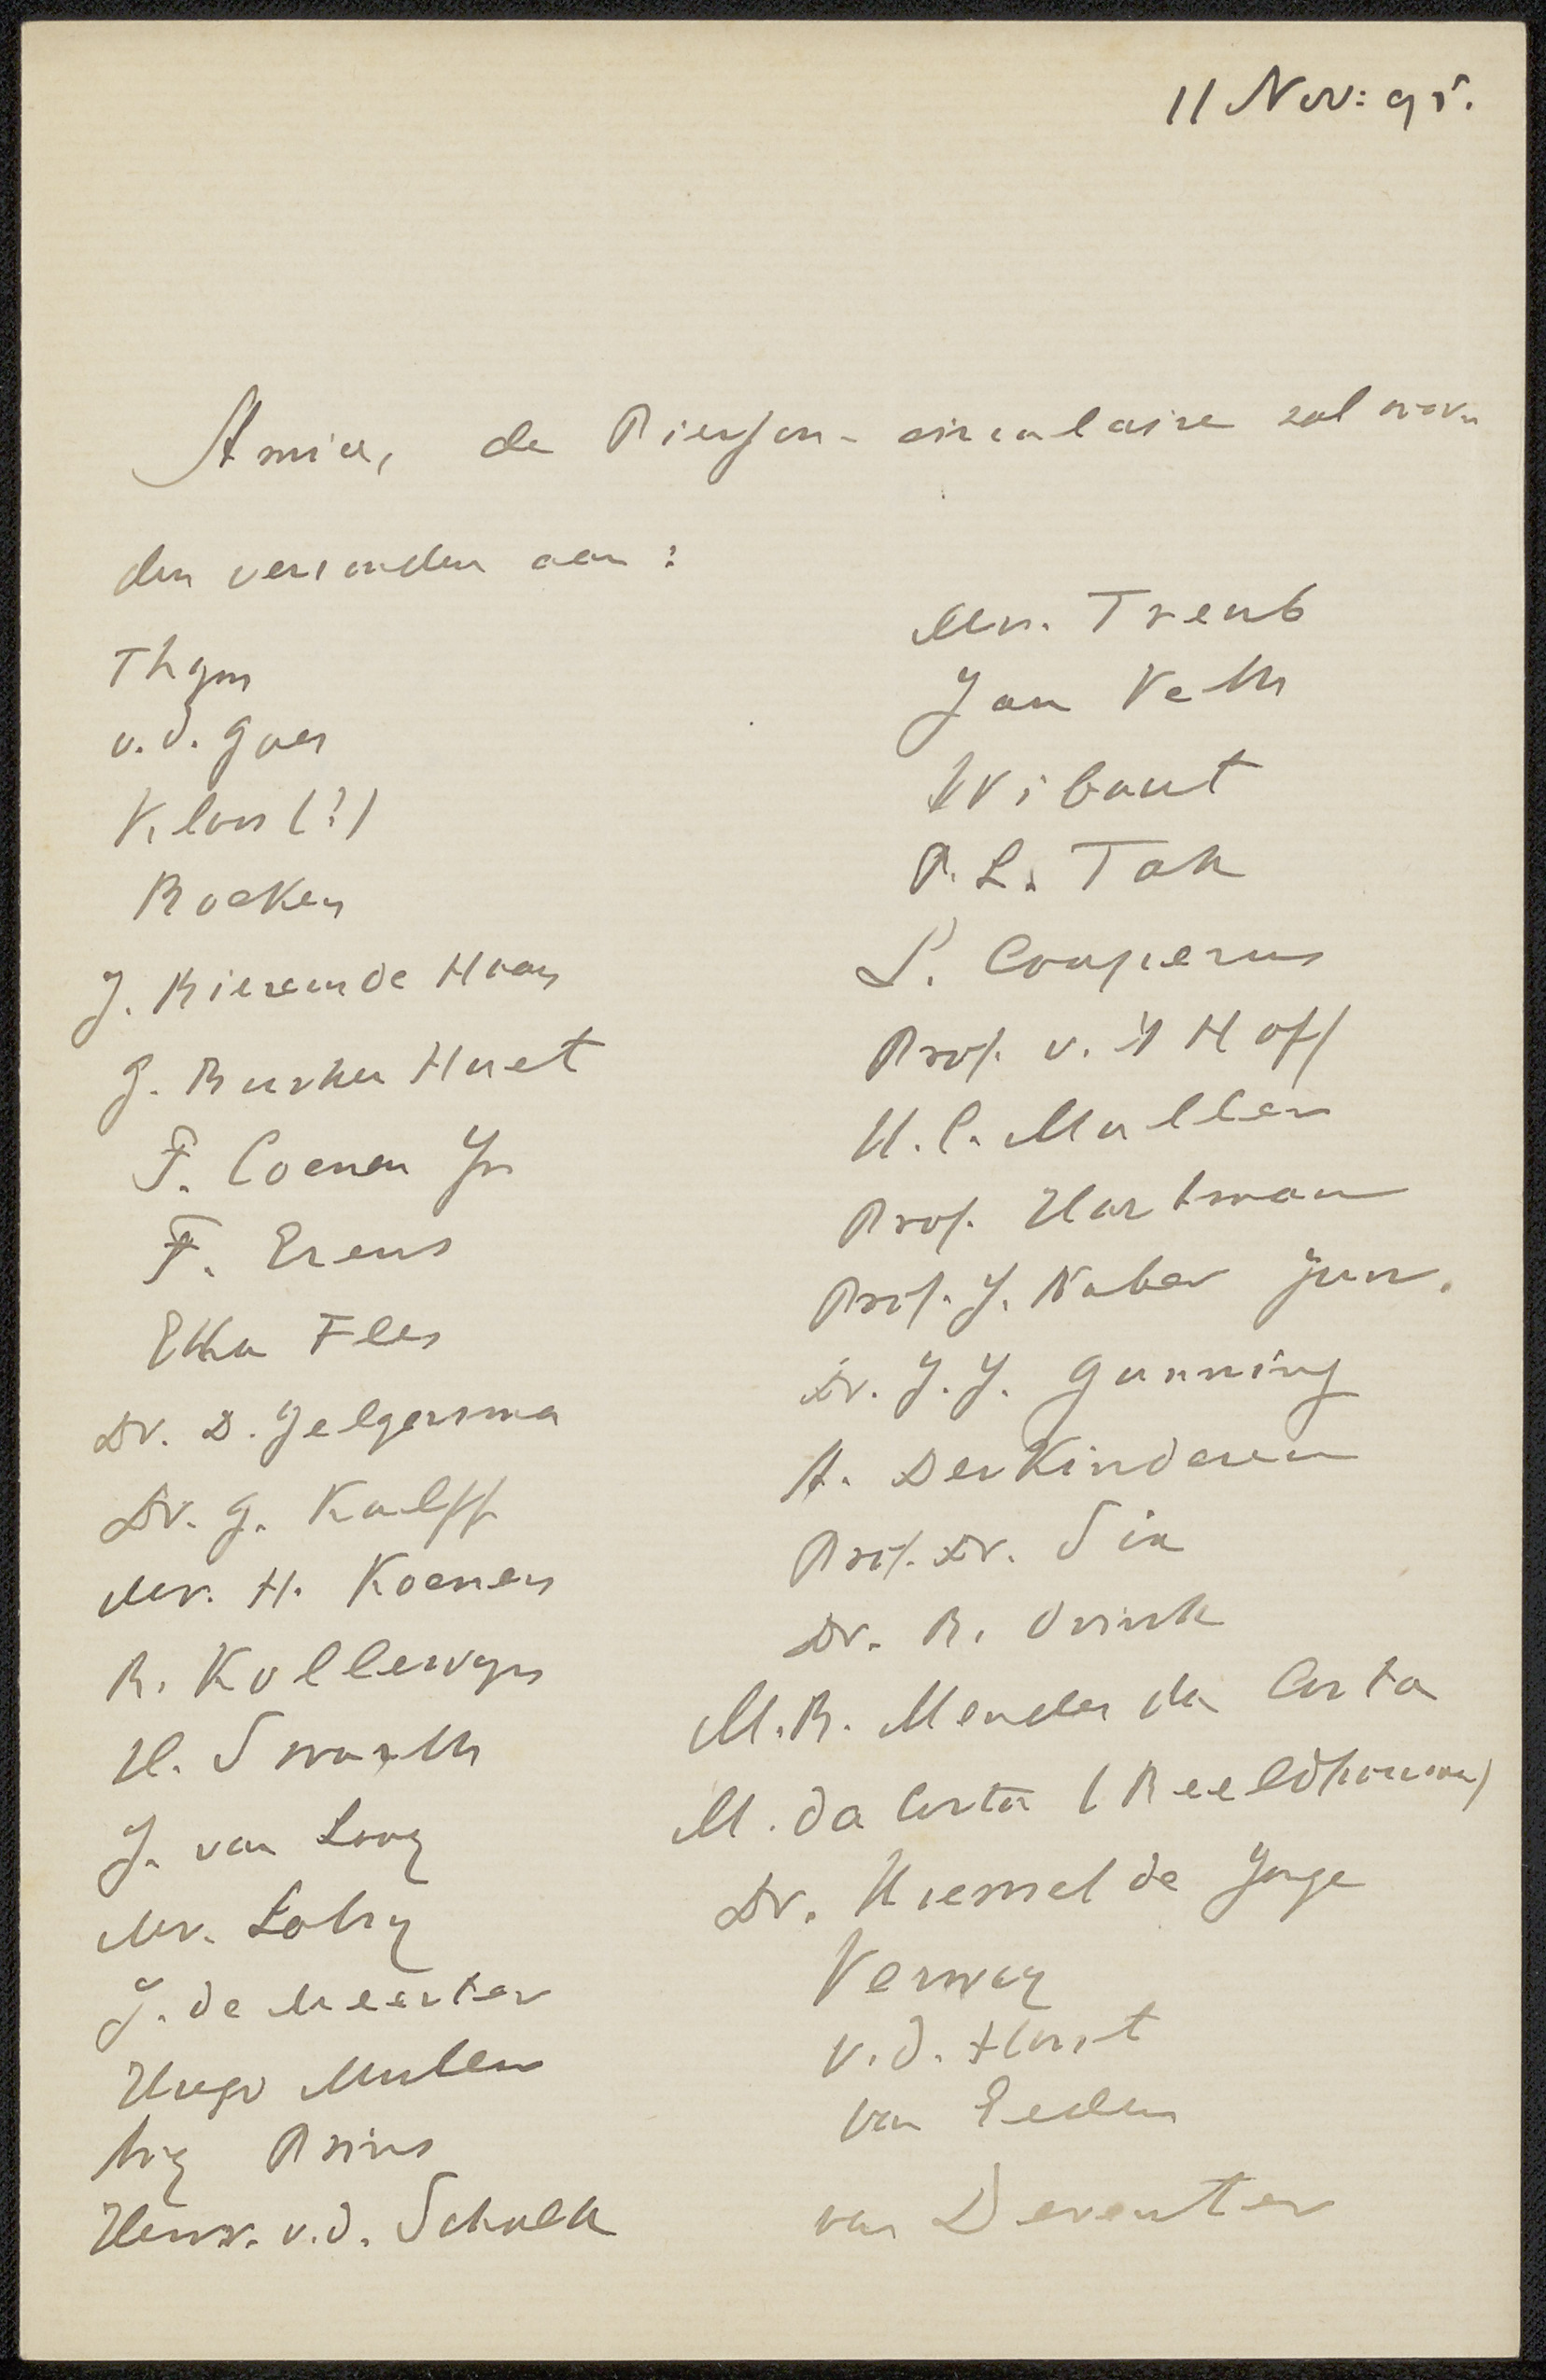 11 Nov: 95.
Amice, de Pierson-circulaire zal wor-
den verzonden aan:
Thym
v.d. Goes
Kloos (?)
Boeken
J. Bierens de Haan
G. Busken Huet
F. Coenen Jr
F. Erens
Etha Fles
Dr. D. Jelgersma
Dr. G. Kalff
Mr. H. Koenen
R. Kollewyn
H. Swarth
J. van Looy
Mr. Lotsy
J. de Meester
Hugo Muller
Ary Prins
Henr. v.d. Schalk
Mr. Treub
Jan Veth
Wibaut
P. L. Tak
L. Couperus
Prof. v. 't Hoff
H. C. Muller
Prof. Hartman
Prof. J. Naber Jun.
Dr. J. J. Gunning
A. Derkinderen
Prof. Dr. Six
Dr. B. Ovink
M. B. Mendes da Costa
M. da Costa (Beeldhouwer)
Dr. Hiemel de Jonge
Verwey
v.d. Horst
van Eeden
van Deventer